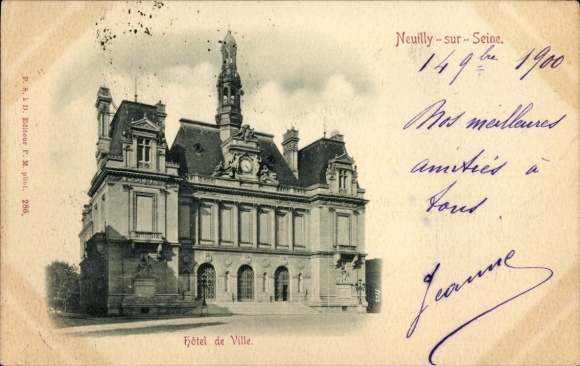 Neuilly-sur-Seine.
14 9bre 1900
Nos meilleures
amitiés à
tous.
Jeanne
Hôtel de Ville.
P. S. à D. Editeur P. M. phot. 286.